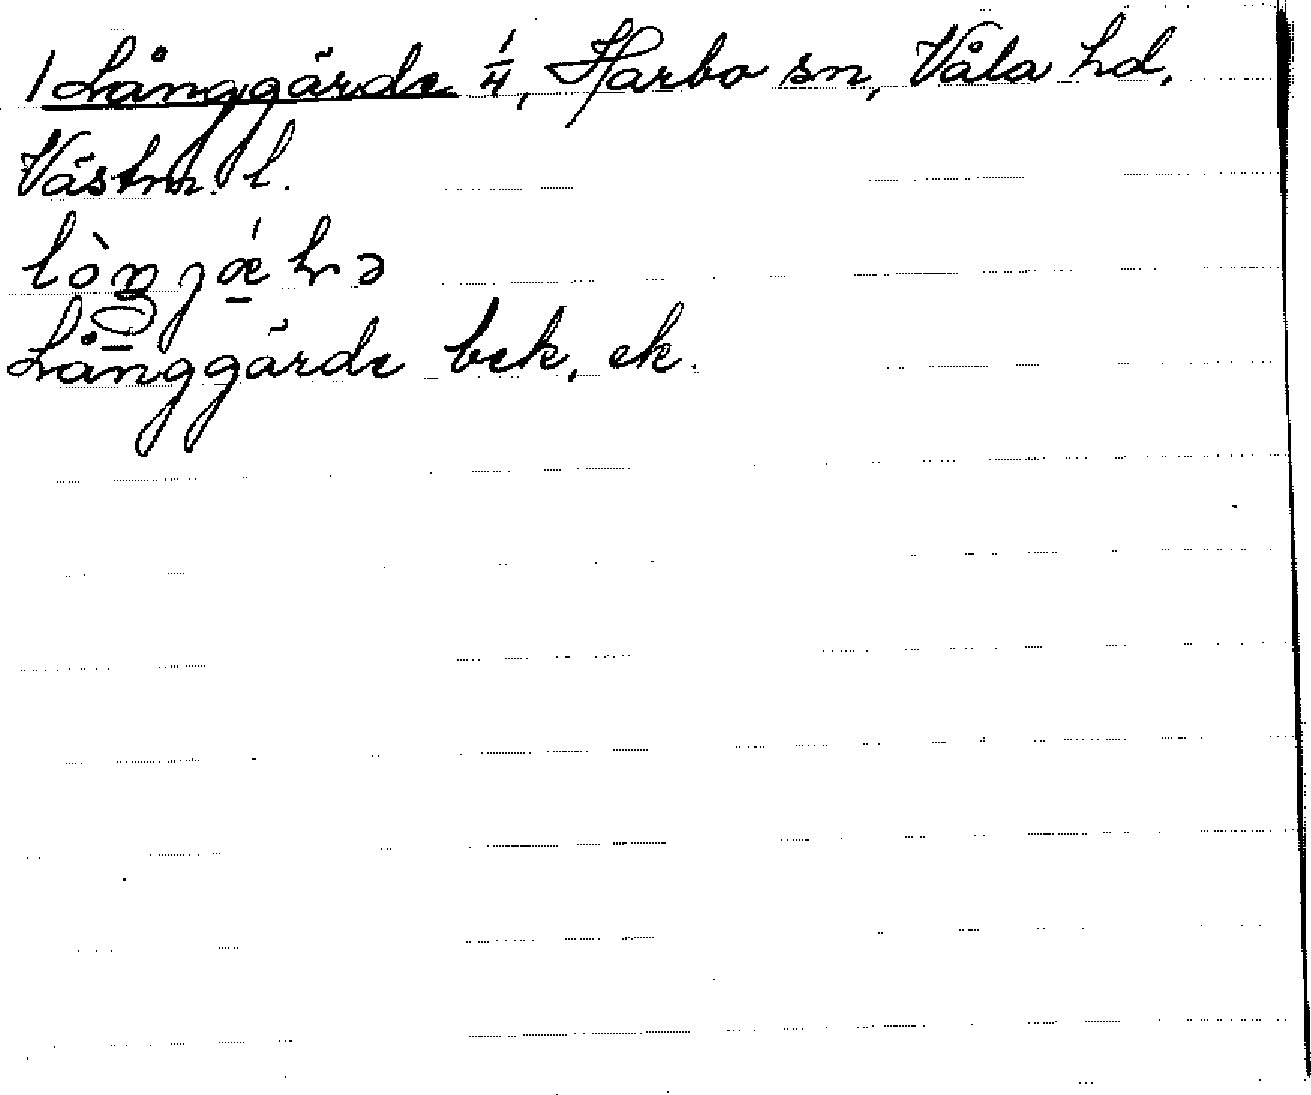 1 Långgärde 1/4, Harbo sn, Våla hd,
Västm. l.
Långgärde bek. ek.